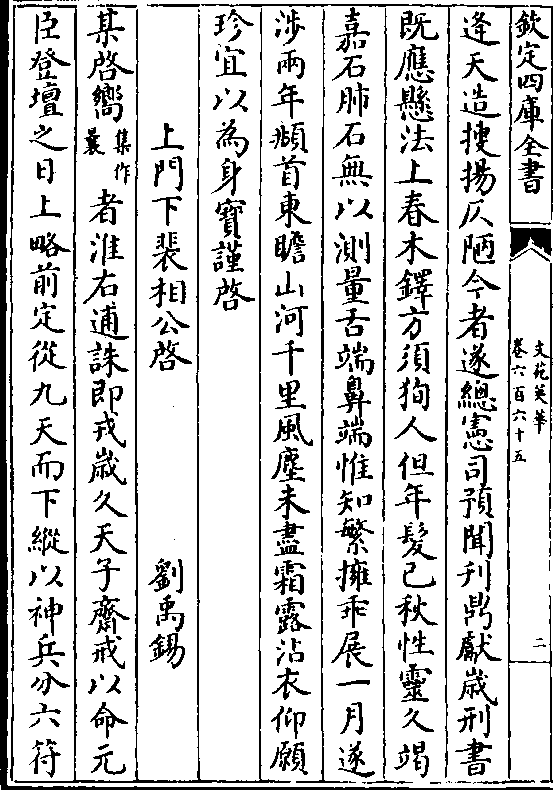 欽定四庫全書
文苑英華
卷六百六十五
二
逢天造搜揚仄陋今者遂總憲司預聞刋鼎獻歲刑書
既應懸法上春木鐸方須狥人但年髮已秋性靈久竭
嘉石肺石無以測量舌端鼻端惟知繁擁乖展一月遂
涉兩年頫首東瞻山河千里風塵未盡霜露沾衣仰願
珍宜以為身寶謹啓
上門下裴相公啓 劉禹錫
某啓嚮集作曩者淮右逋誅即戎歲久天子齋戒以命元
臣登壇之日上略前定從九天而下縱以神兵分六符